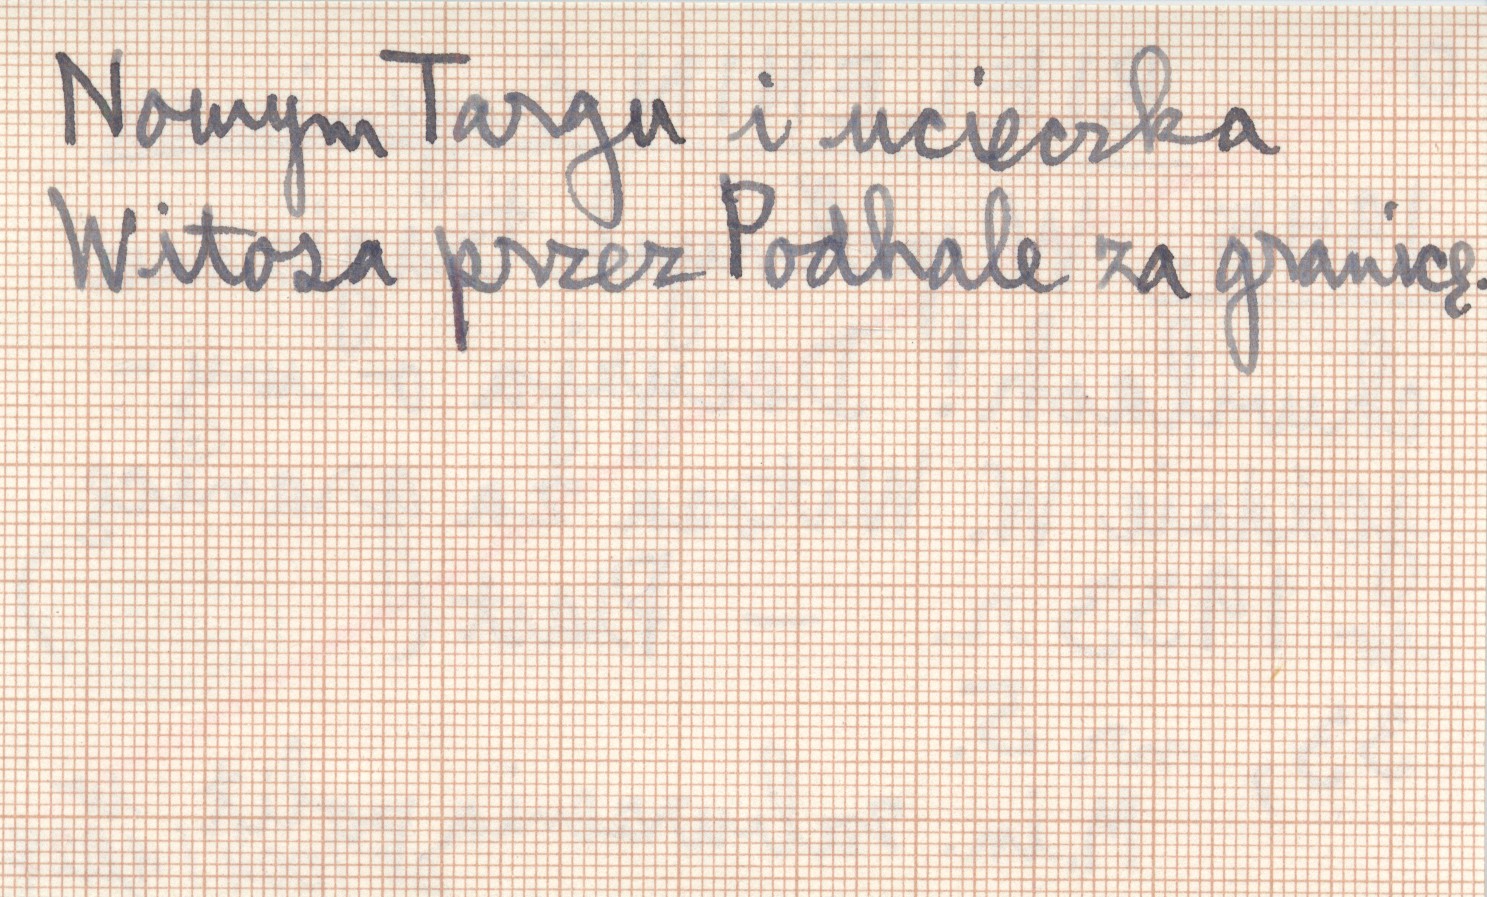 Nowym Targu i ucieczka
Witosa przez Podhale za granicę.